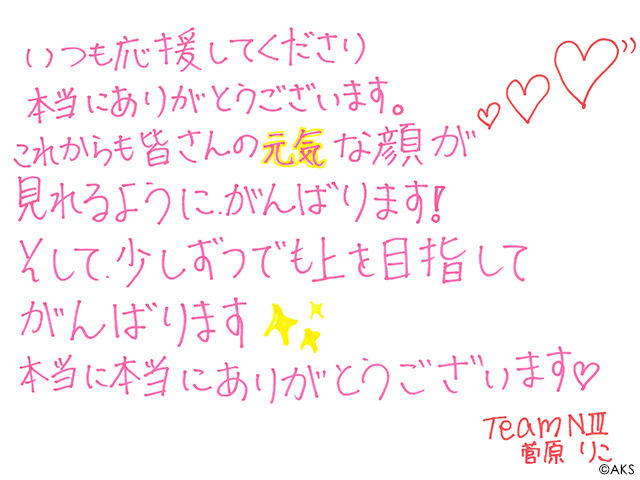 いつも応援してくださり
本当にありがとうございます。
これからも皆さんの元気な顔が
見れるように、がんばります!
そして、少しずつでも上を目指して
がんばります
本当に本当にありがとうございます♡
TeamNⅢ
菅原 りこ
©AKS